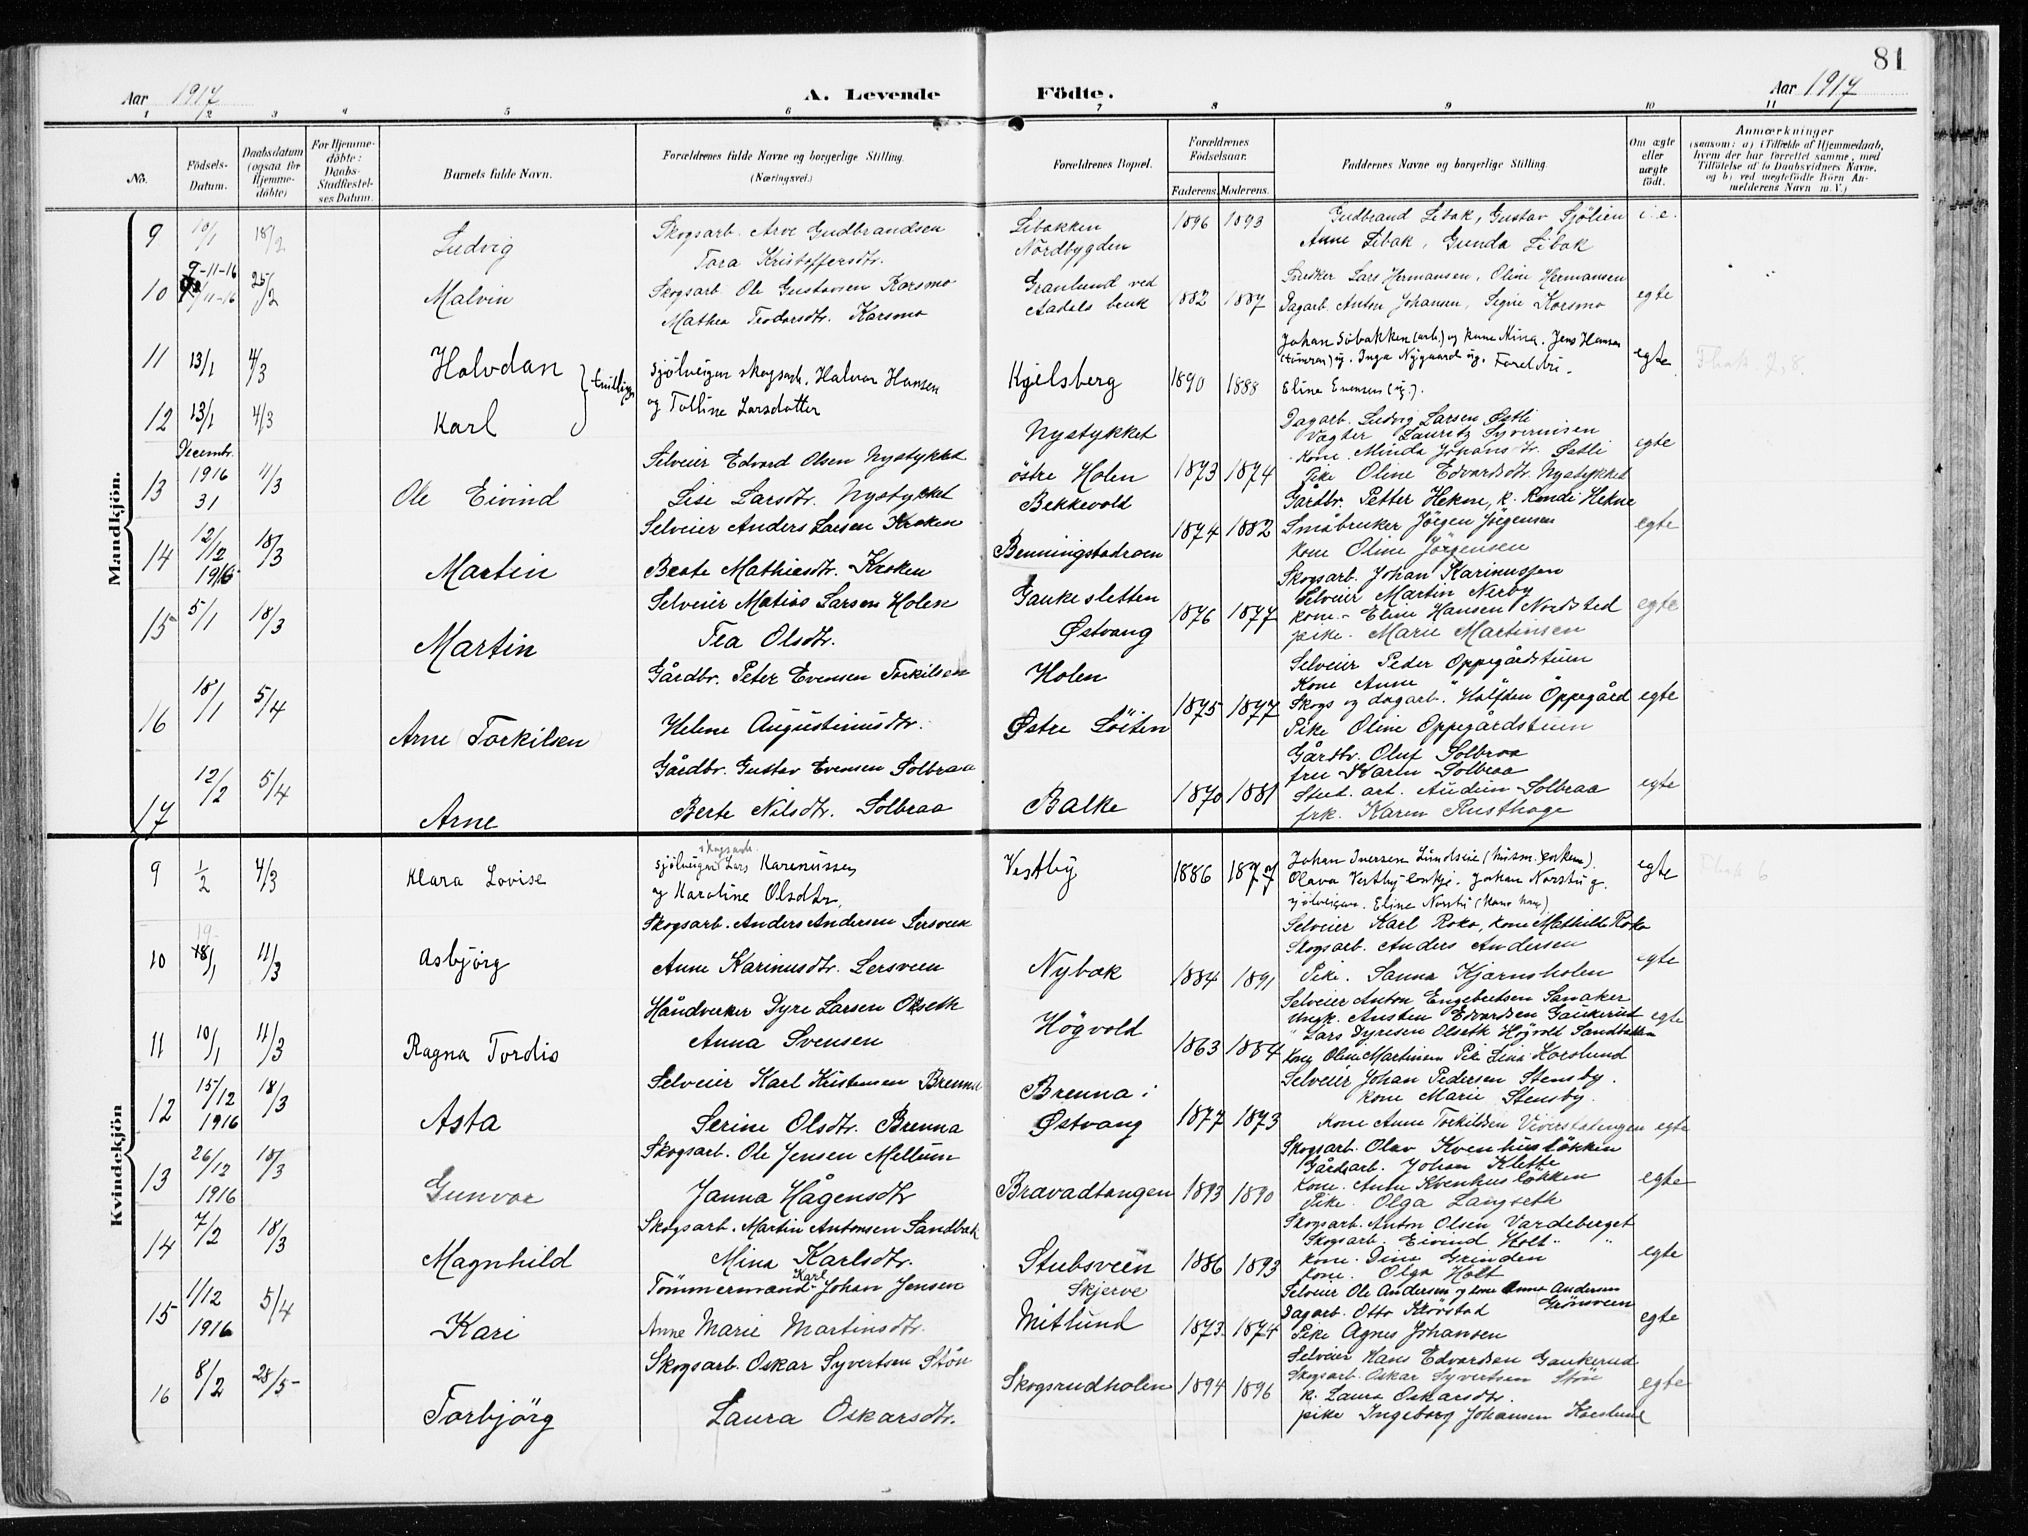 81
Aar 1917 A. Levende Födte. Aar 1917
1 2 3 4 5 6 7 8 9 10 11
No. Födsels-Datum. Daabsdatum (ogsaa for Hjemme-döbte) For Hjemme-döbte: Daabs-Stadfæstel-ses Datum. Barnets fulde Navn. Forældrenes fulde Navne og borgerlige Stilling. (Næringsvei.) Forældrenes Bopæl. Forældrenes Födselsaar. Faderens. Moderens. Faddernes Navne og borgerlige Stilling. Om ægte eller uægte födt. Anmærkninger (saasom: a) i Tilfælde af Hjemmedaab, hvem der har forrettet samme, med Tilföielse af to Daabsvidners Navne, og b) ved uægtefödte Börn An-melderens Navn m. V.)
Mandkjön.
9 10/1 18/2 Ludvig Skogsarb. Arve Gudbrandsen Libakken 1896 1893 Gudbrand Libak, Gustav Sjölien i.e.
Tora Kristoffersdtr. Nordbygden Anne Libak, Gunda Libak
10 9-11-16 25/2 Malvin Skogsarb. Ole Gustavsen Korsmo Granlund ved 1882 1887 Snedker Lars Hermansen, Oline Hermansen egte
Mathea Teodorsdtr. Korsmo Aadals bruk Dagarb. Anton Johansen, Signe Korsmo
11 13/1 4/3 Halvdan } tvillinger sjölveigar skogsarb. Halvor Hansen Kjelsberg 1890 1888 Johan Sobakken (arb.) og kone Mina. Jens Hansen egte
og Tolline Larsdotter ug. Inga Nygaard ug. Foreldri.
12 13/1 4/3 Karl Eline Evensen (ug.).
13 Decembr. 1916 31 11/3 Ole Eivind Selveier Edvard Olsen Nystykket Nystykket 1873 1874 Dagarb. Ludvig Larsen Østli egte
Lise Larsdtr. Nystykket östre Holen Vagter Lauritz Syvernsen
Kone. Minda Johansdtr. Østli
Pike Oline Edvardsdtr. Nystykket
14 12/12 1916 18/3 Martin Selveier Anders Larsen Kroken Bekkevold 1874 1882 Gårdbr. Petter Hekne, k. Randi Hekne egte
Berte Mathisdtr. Kroken Benningstadroen Småbruker Jörgen Jörgensen
Kone Oline Jörgensen
15 5/1 18/3 Martin Selveier Matias Larsen Holen Gaukesletten 1876 1877 Skogsarb. Johan Karinussen egte
Tea Olsdtr. Østvang Selveier Martin Nerby
kone - Eline Hansen Nordsted
pike. Marie Martinsen
16 18/1 5/4 Arne Torkilsen Gårdbr. Peter Evensen Torkilsen Holen 1875 1877 Selveier Peder Oppegårdstuen egte
Helene Augustinusdtr. Østre Löiten Kone Anne "
Skogs og dagarb. Halfdan Oppegård
Pike Oline Oppegårdstuen
17 12/2 5/4 Arne Gårdbr. Gustav Evensen Solbraa Balke 1870 1881 Gårdbr. Oluf Solbraa egte
Berte Nilsdtr. Solbraa fru Karen Solbraa
Stud. art. Audun Solbraa
frk. Karen Rusthoge
Kvindekjön
9 1/2 4/3 Klara Lovise skogsarb. sjölveigar Lars Karenussen Vestby 1886 1877 Johan Iversen Lundseie egte
og Karoline Olsdtr. Olava Vestby enkje. Johan Norstu g.
sjölveigar. Eline Norstu (kona hans)
10 19 18/1 11/3 Asbjörg Skogsarb. Anders Andersen Lersveen Nybak 1884 1891 Selveier Karl Roko, kone Mathilde Roko egte
Anne Karinusdtr. Lersveen Skogsarb. Anders Andersen
Pike. Sanna Kjernsholen
11 10/1 11/3 Ragna Tordis Håndverker Dyre Larsen Olseth Högvold 1863 1884 Selveier Anton Engebretsen Sanaker egte
Anna Svensen Ungk. Austen Edvardsen Gaukerud
" Lars Dyresen Olseth Högvold Sandbakken
Kone Oline Martinsen Pike Lina Korslund
12 15/12 1916 18/3 Asta Selveier Karl Kristensen Brenna Brenna i 1877 1873 Selveier Johan Pedersen Stensby. egte
Serine Olsdtr. Brenna Østvang kone Marie Stensby.
Kone Anne Torkildsen
13 26/12 1916 18/3 Gunvor Skogsarb. Ole Jensen Mellum Bravadtangen 1893 1890 Skogsarb. Olav Kvenhuslökken egte
Janna Hågensdtr Gårdsarb. Johan Klette
Kone. Anne Kvenhuslökken
Pike. Olga Langseth
14 7/2 18/3 Magnhild Skogsarb. Martin Antonsen Sandbak Stubsveen 1886 1893 Skogsarb. Anton Olsen Vardeberget egte
Mina Karlsdtr. Skogsarb. Eivind Holt " "
kone. Dina Grinden
kone. Olga Holt
15 1/12 1916 5/4 Kari Tömmermand Karl Johan Jensen Skjerve 1873 1874 Selveier Ole Andersen og kone Anne Andersen Grönsveen egte
Anne Marie Martinsdtr. Mitlund Dagarb. Otto Skövstad
Pike Agnes Johansen
16 8/2 28/5 Torbjörg Skogsarb. Oskar Syvertsen Stön Skogsrudholen 1894 1896 Selveier Hans Edvardsen Gaukerud egte
Laura Oskarsdtr. Skogsarb. Oskar Syvertsen Stön
k. Laura Oskarsdtr.
pike Ingeborg Johansen Korslund